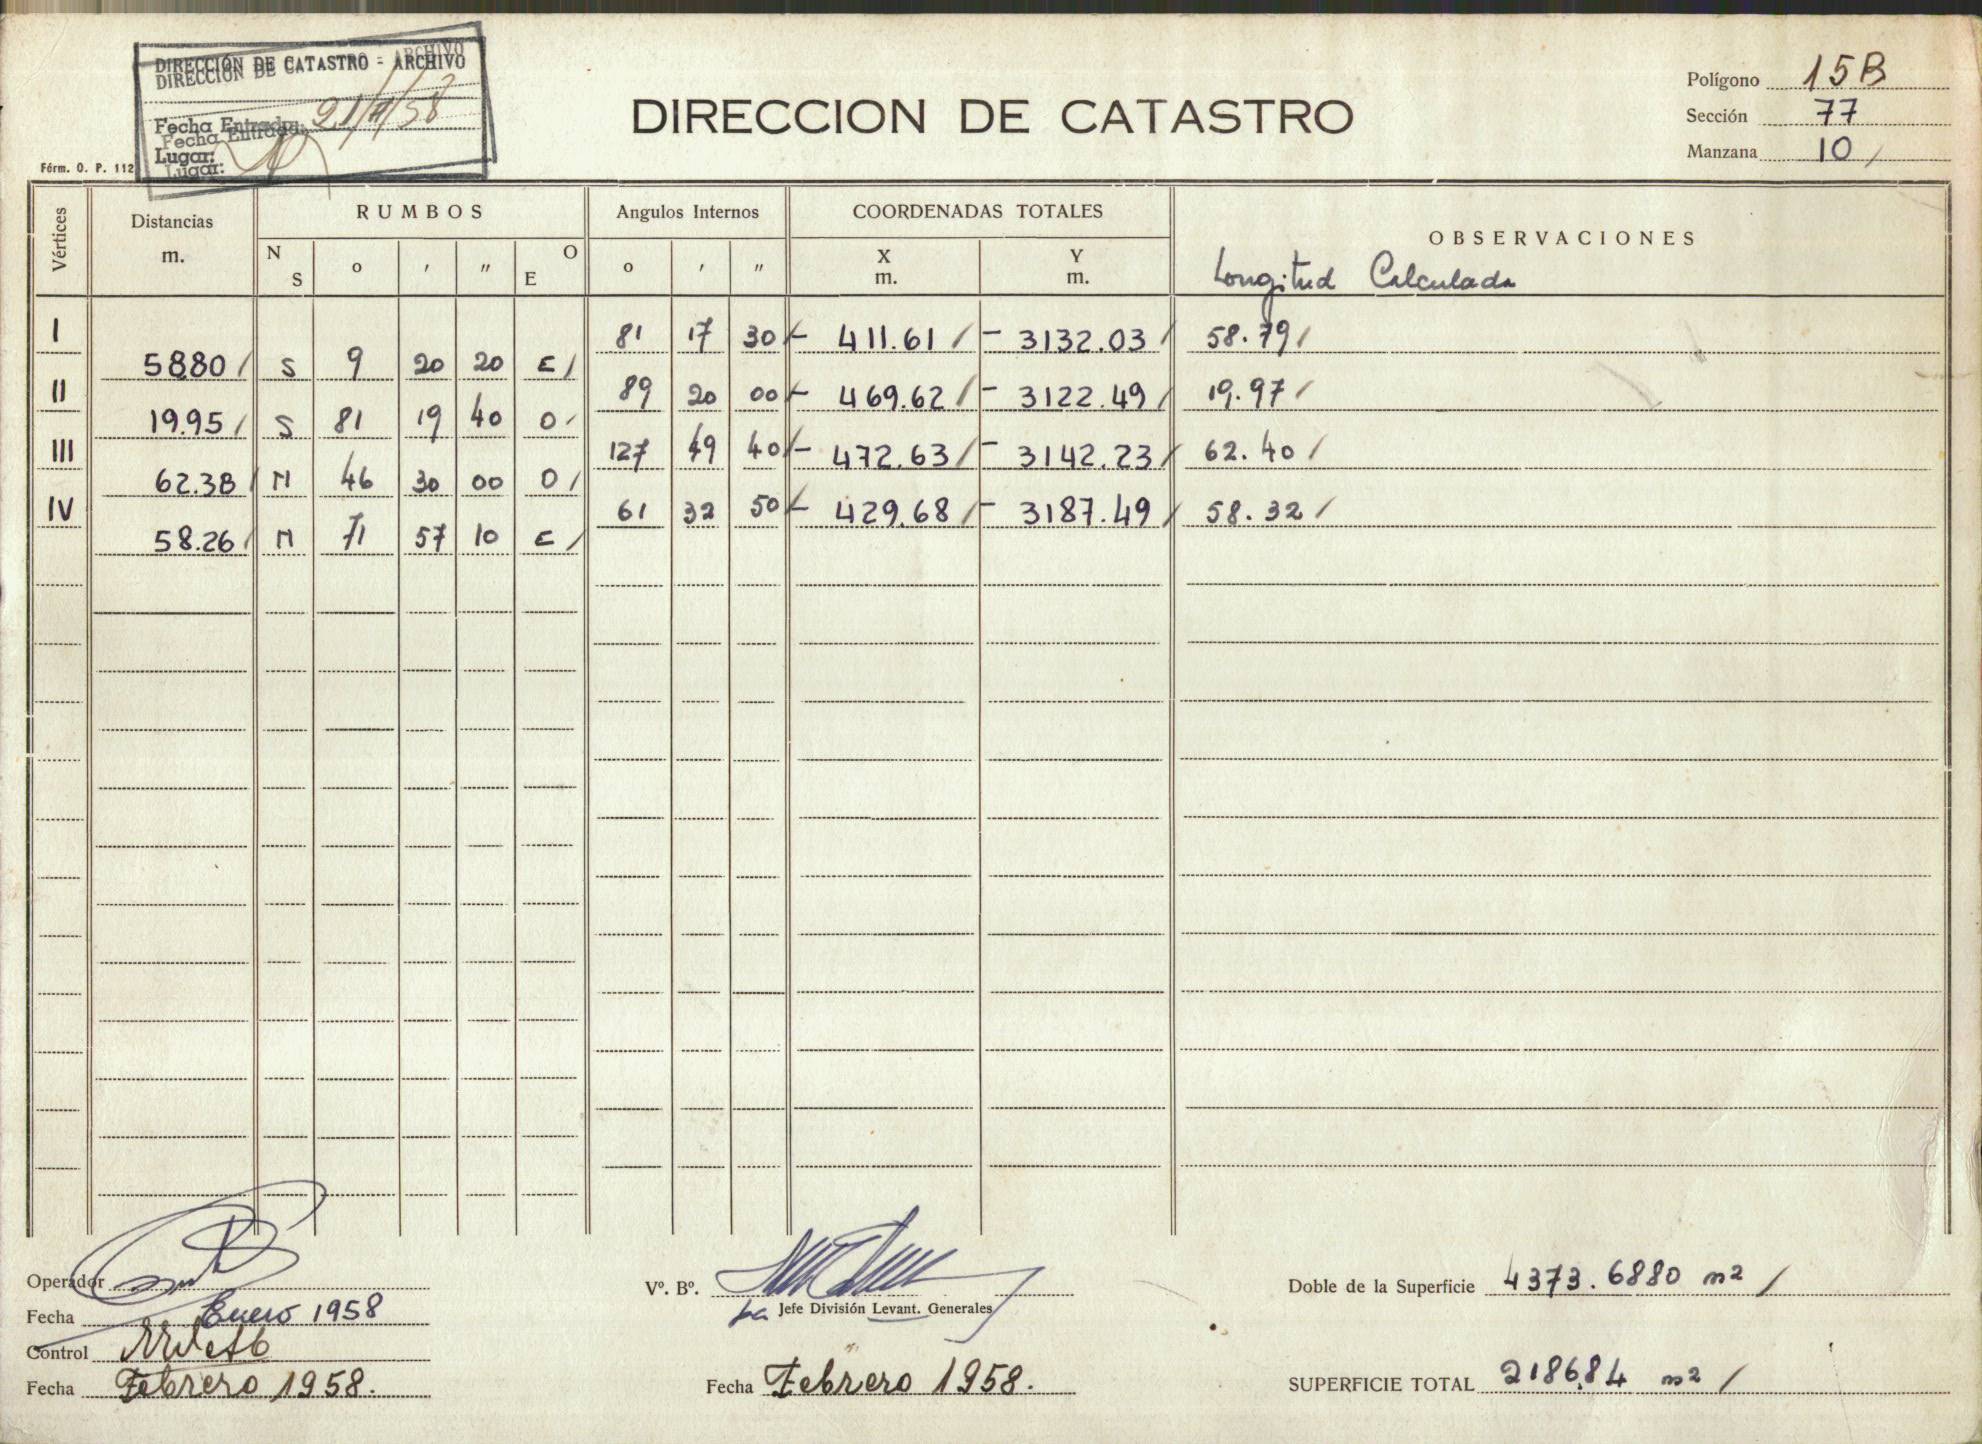 DIRECCIÓN DE CATASTRO - ARCHIVO
DIRECCIÓN DE CATASTRO - ARCHIVO
Fecha Entrada:
Fecha Entrada:
Lugar:
Lugar:
Fórm. O. P. 112
DIRECCION DE CATASTRO
Polígono 15B
Sección 77
Manzana 10 /
Vértices
Distancias
m.
RUMBOS
N S ° ′ ″ O E
Angulos Internos
° ′ ″
COORDENADAS TOTALES
X
m.
Y
m.
OBSERVACIONES
Longitud Calculada
I 81 17 30 / - 411.61 / - 3132.03 / 58.79 /
58.80 / S 9 20 20 E /
II 89 20 00 / - 469.62 / - 3122.49 / 19.97 /
19.95 / S 81 19 40 O /
III 127 49 40 / - 472.63 / - 3142.23 / 62.40 /
62.38 / N 46 30 00 O /
IV 61 32 50 / - 429.68 / - 3187.49 / 58.32 /
58.26 / N 71 57 10 E /
Operador
Fecha Enero 1958
Control
Fecha Febrero 1958.
Vº. Bº.
Jefe División Levant. Generales
Fecha Febrero 1958.
Doble de la Superficie 4373.6880 m2 /
SUPERFICIE TOTAL 2186.84 m2 /